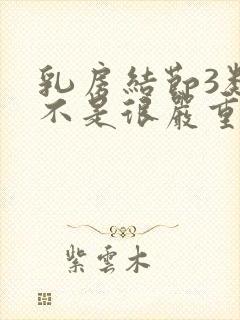 乳房結節3類
不是很嚴重
紫雲木